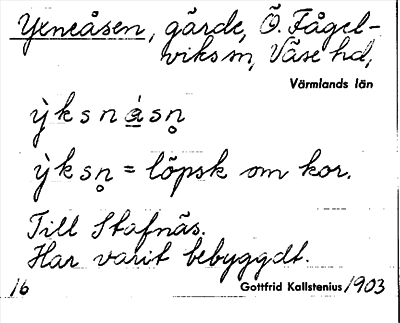 Yxneåsen, gärde, Ö. Fågel-
viks sn, Väse hd,
Värmlands län
ỳksnå̀sn̥
ỳksn̥ = löpsk om kor.
Till Stafnäs.
Har varit bebyggdt.
16 Gottfrid Kallstenius 1903